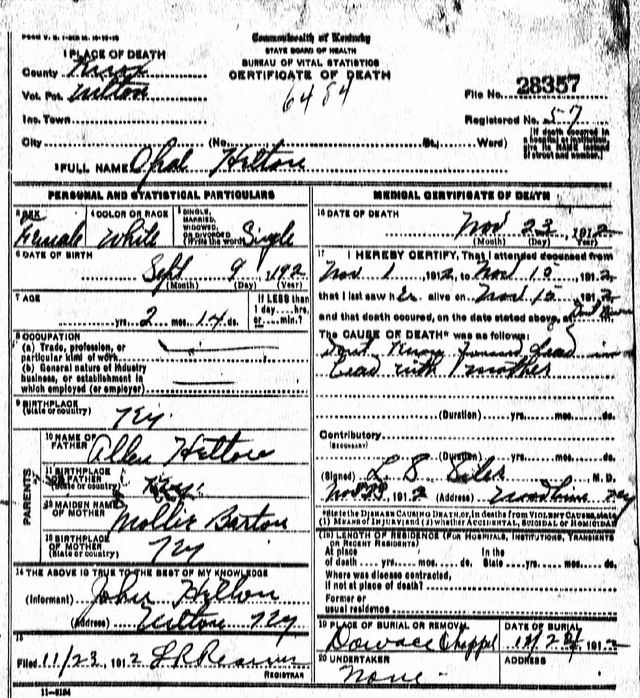 Commonwealth of Kentucky
STATE BOARD OF HEALTH
BUREAU OF VITAL STATISTICS
CERTIFICATE OF DEATH
6484
1 PLACE OF DEATH
County Knox
Vot. Pct. Wilton
Inc. Town
File No. 28357
Registered No. 57
(If death occurred in a hospital or institution, give its NAME instead of street and number.)
City (No. St., Ward)
2 FULL NAME Opal Helton
PERSONAL AND STATISTICAL PARTICULARS
3 SEX Female
4 COLOR OR RACE White
5 SINGLE, MARRIED, WIDOWED, OR DIVORCED (Write the word) Single
6 DATE OF BIRTH
Sept 9 1912
(Month) (Day) (Year)
7 AGE
yrs. 2 mos. 14 ds.
If LESS than 1 day----hrs. or----min.?
8 OCCUPATION
(a) Trade, profession, or
particular kind of work
(b) General nature of Industry
business, or establishment in
which employed (or employer)
9 BIRTHPLACE
(State or country) Ky.
PARENTS
10 NAME OF FATHER Allen Helton
11 BIRTHPLACE OF FATHER
(State or country) Ky.
12 MAIDEN NAME OF MOTHER Mollie Barton
13 BIRTHPLACE OF MOTHER
(State or country) Ky
14 THE ABOVE IS TRUE TO THE BEST OF MY KNOWLEDGE
(Informant) John Helton
(Address) Wilton Ky
15
Filed 11/23, 1912
REGISTRAR
11-3184
MEDICAL CERTIFICATE OF DEATH
16 DATE OF DEATH
Nov 23 1912
(Month) (Day) (Year)
17 I HEREBY CERTIFY, That I attended deceased from
Nov 1 1912, to Nov 15 1912
that I last saw her alive on Nov 15 1912
and that death occured, on the date stated above,
The CAUSE OF DEATH* was as follows:
Dont Know found dead in
bead with mother
(Duration) yrs. mos. ds.
Contributory
(SECONDARY)
(Duration) yrs. mos. ds.
(Signed) L. B. Siler M. D.
Nov 23 1912 (Address) Ky
*State the DISEASE CAUSING DEATH, or, in deaths from VIOLENT CAUSES, state
(1) MEANS OF INJURY; and (2) whether ACCIDENTAL, SUICIDAL OR HOMICIDAL
18 LENGTH OF RESIDENCE (FOR HOSPITALS, INSTITUTIONS, TRANSIENTS
OR RECENT RESIDENTS)
At place of death yrs. mos. ds. In the State yrs. mos. ds.
Where was disease contracted,
if not at place of death?
Former or
usual residence
19 PLACE OF BURIAL OR REMOVAL
DATE OF BURIAL
Chappel 11/24 1912
20 UNDERTAKER
None
ADDRESS